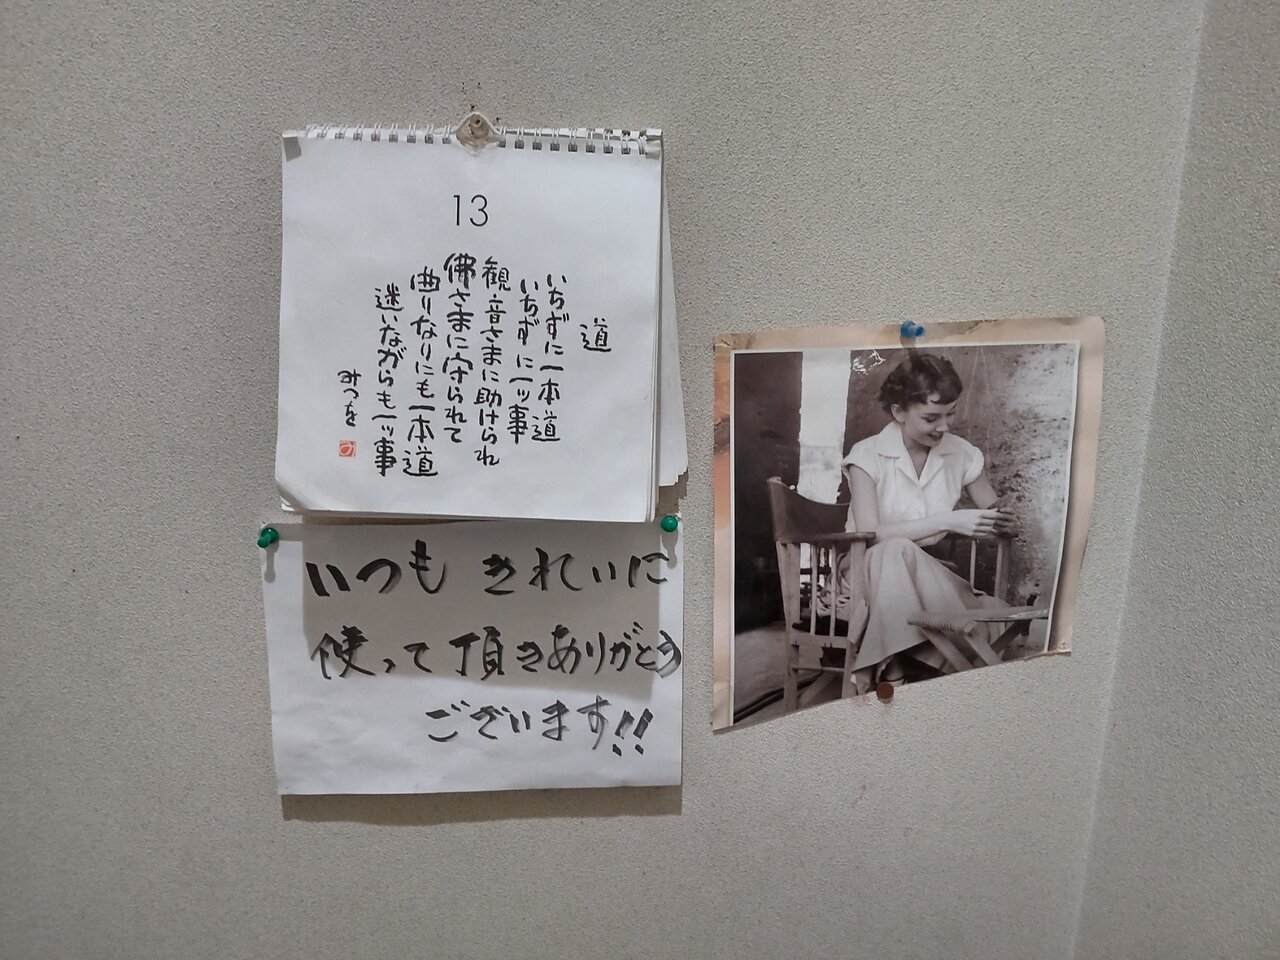 13
道
いちずに一本道
いちずに一ッ事
観音さまに助けられ
佛さまに守られて
曲りなりにも一本道
迷いながらも一ッ事
みつを
み
いつもきれいに
使って頂きありがとう
ございます!!